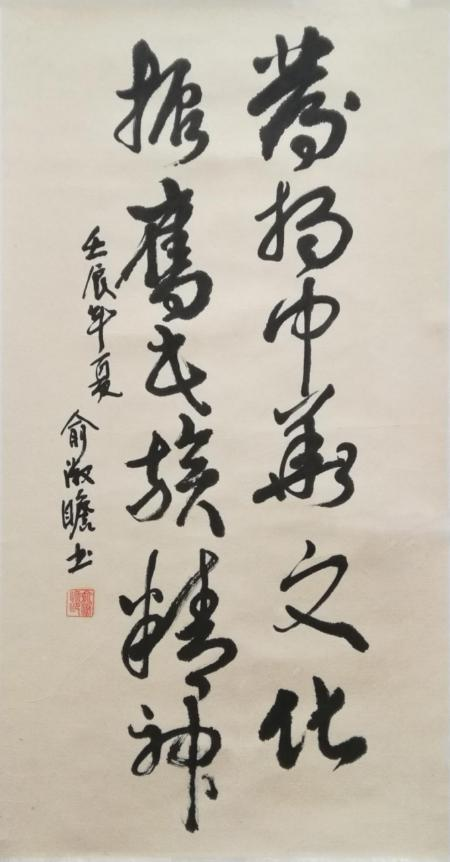 發揚中華文化
振奮民族精神
壬辰年夏 俞淑瞻书